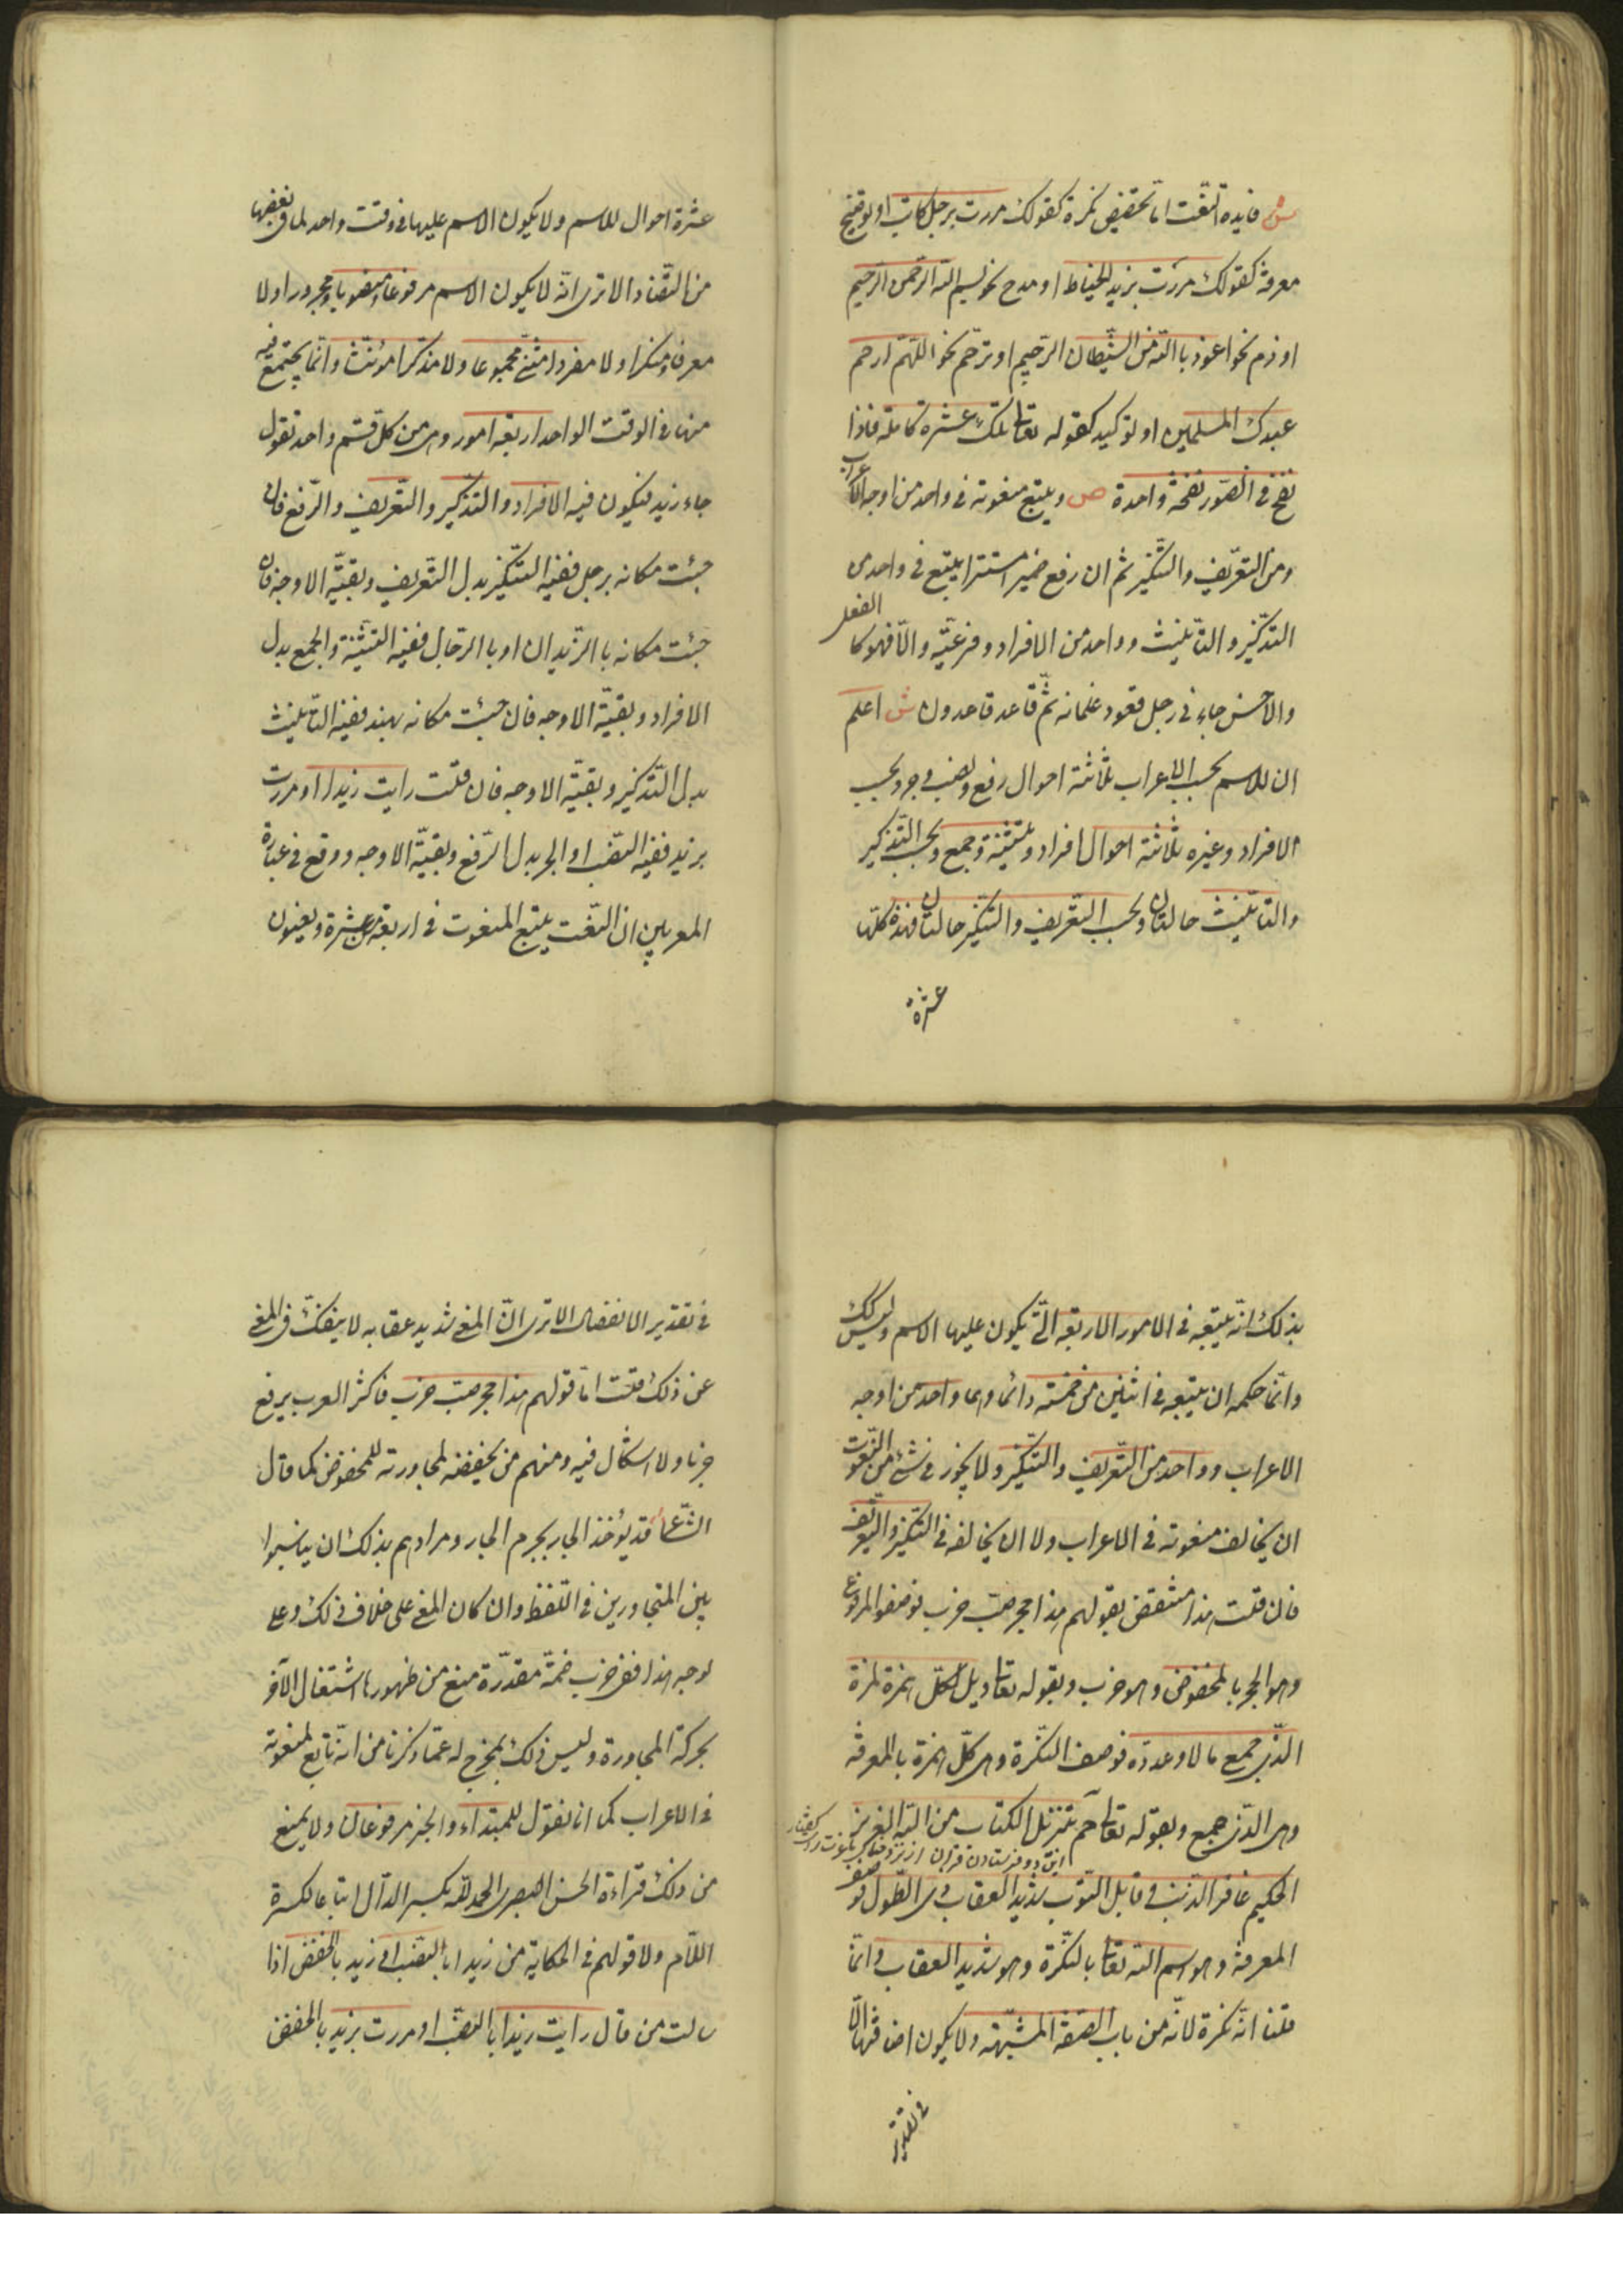 ش فايدة النّعت امّا تخصيص نكرة كقولك مررت برجل كاتب او توضيح
معرفة كقولك مررت بزيد الخيّاط او مدح نحو بسم اللّه الرّحمن الرّحيم
او ذم نحو اعوذ باللّه من الشّيطان الرّجيم او ترحّم نحو اللّهم ارحم
عبدك المسلمين او توكيد كقوله تعا تلك عشرة كاملة فاذا
نفخ فى الصّور نفخة واحدة ص ويتبع منعوته فى واحد من اوجه الاعراب
ومن التعريف والتّنكير ثم ان رفع ضميرا مستترا يتبع فى واحد من
التّذكير والتّأنيث وواحد من الافراد وفرعيّه والّا فهو كالفعل
والاحسن جاءنى رجل قعود غلمانه ثمّ قاعد ثمّ قاعدون ش اعلم
ان للاسم بحسب الاعراب ثلاثة احوال رفع ونصب وجر وبحسب
الافراد وغيره ثلاثة احوال افراد وتثنية وجمع وبحسب التّذكير
والتّأنيث حالتان وبحسب التّعريف والتّنكير حالتان فهذه كلّها
عشرة
عشرة احوال للاسم ولا يكون الاسم عليها فى وقت واحد لما فى بعضها
من التّضاد الا ترى انّه لا يكون الاسم مرفوعا ومنصوبا ومجرورا ولا
معرفا ومنكرا ولا مفردا مثنّى مجموعا ولا مذكّرا مؤنّثا وانّما يجتمع فيه
منها فى الوقت الواحد اربعة امور وهى من كل قسم واحد تقول
جاء زيد فيكون فيه الافراد والتّذكير والتّعريف والرّفع فان
جئت مكانه برجل ففيه التّنكير بدل التّعريف وبقيّة الاوجه فان
جئت مكانه باالزّيدان او باالرّجال ففيه التّثنية والجمع بدل
الافراد وبقيّة الاوجه فان جئت مكانه بهند ففيه التّأنيث
بدل التّذكير وبقيّة الاوجه فان قلت رايت زيدا او مررت
بزيد ففيه النّصب او الجر بدل الرّفع وبقيّة الاوجه ووقع فى عبارة
المعربين ان النّعت يتبع المنعوت فى اربعة من عشرة ويعنون
بذلك انّه يتبعه فى الامور الاربعة الّتى يكون عليها الاسم وليس كذلك
وانّما حكمه ان يتبعه فى اثنين من خمسة دائما وهما واحد من اوجه
الاعراب وواحد من التّعريف والتّنكير ولا يجوز فى شئ من النّعوت
ان يخالف منعوته فى الاعراب ولا ان يخالفه فى التّنكير والتّعريف
فان قلت هذا منتقض بقولهم هذا حجر ضبّ خرب فوصفوا المرفوع
وهو الحجر بالمخفوض وهو خرب وبقوله تعا ويل لكلّ همزة لمزة
الّذى جمع مالا وعدّده فوصف النّكرة وهى كلّ همزة بالمعرفة
وهى الّذى جمع وبقوله تعا حم تنزيل الكتاب من اللّه العزيز
الحكيم غافر الذّنب وقابل التّوب شديد العقاب ذى الطّول فوصف
المعرفة وهو اسم اللّه تعا بالنّكرة وهو شديد العقاب وانّما
قلنا انّه نكرة لانّه من باب الصّفة المشبّهة ولا يكون اضافتها الّا
فى تقدير
فى تقدير الانفصال الا ترى انّ المعنى شديد عقابه لا ينفكّ فى المعنى
عن ذلك قلت امّا قولهم هذا حجر ضبّ خرب فاكثر العرب يرفع
خربا ولا اشكال فيه ومنهم من يخفضه لمجاورته للمخفوض كما قال
الشّاعر قد يؤخذ الجار بجرم الجار ومرادهم بذلك ان يناسبوا
بين المتجاورين فى اللّفظ وان كان المعنى على خلاف ذلك وعلى
لوجه هذا ففى خرب ضمّة مقدّرة منع من ظهورها اشتغال الآخر
بحركة المجاورة وليس ذلك بمخرج له عمّا ذكرنا من انّه تابع لمنعوته
فى الاعراب كما انا نقول للمبتداء والخبر مرفوعان ولا يمنع
من ذلك قراءة الحسن البصرى الحمد للّه بكسر الدّال اتباعا لكسرة
اللّام ولا قولهم فى الحكاية من زيدا بالنّصب او زيد بالخفض اذا
سالت من قال رايت زيدا بالنّصب او مررت بزيد بالخفض